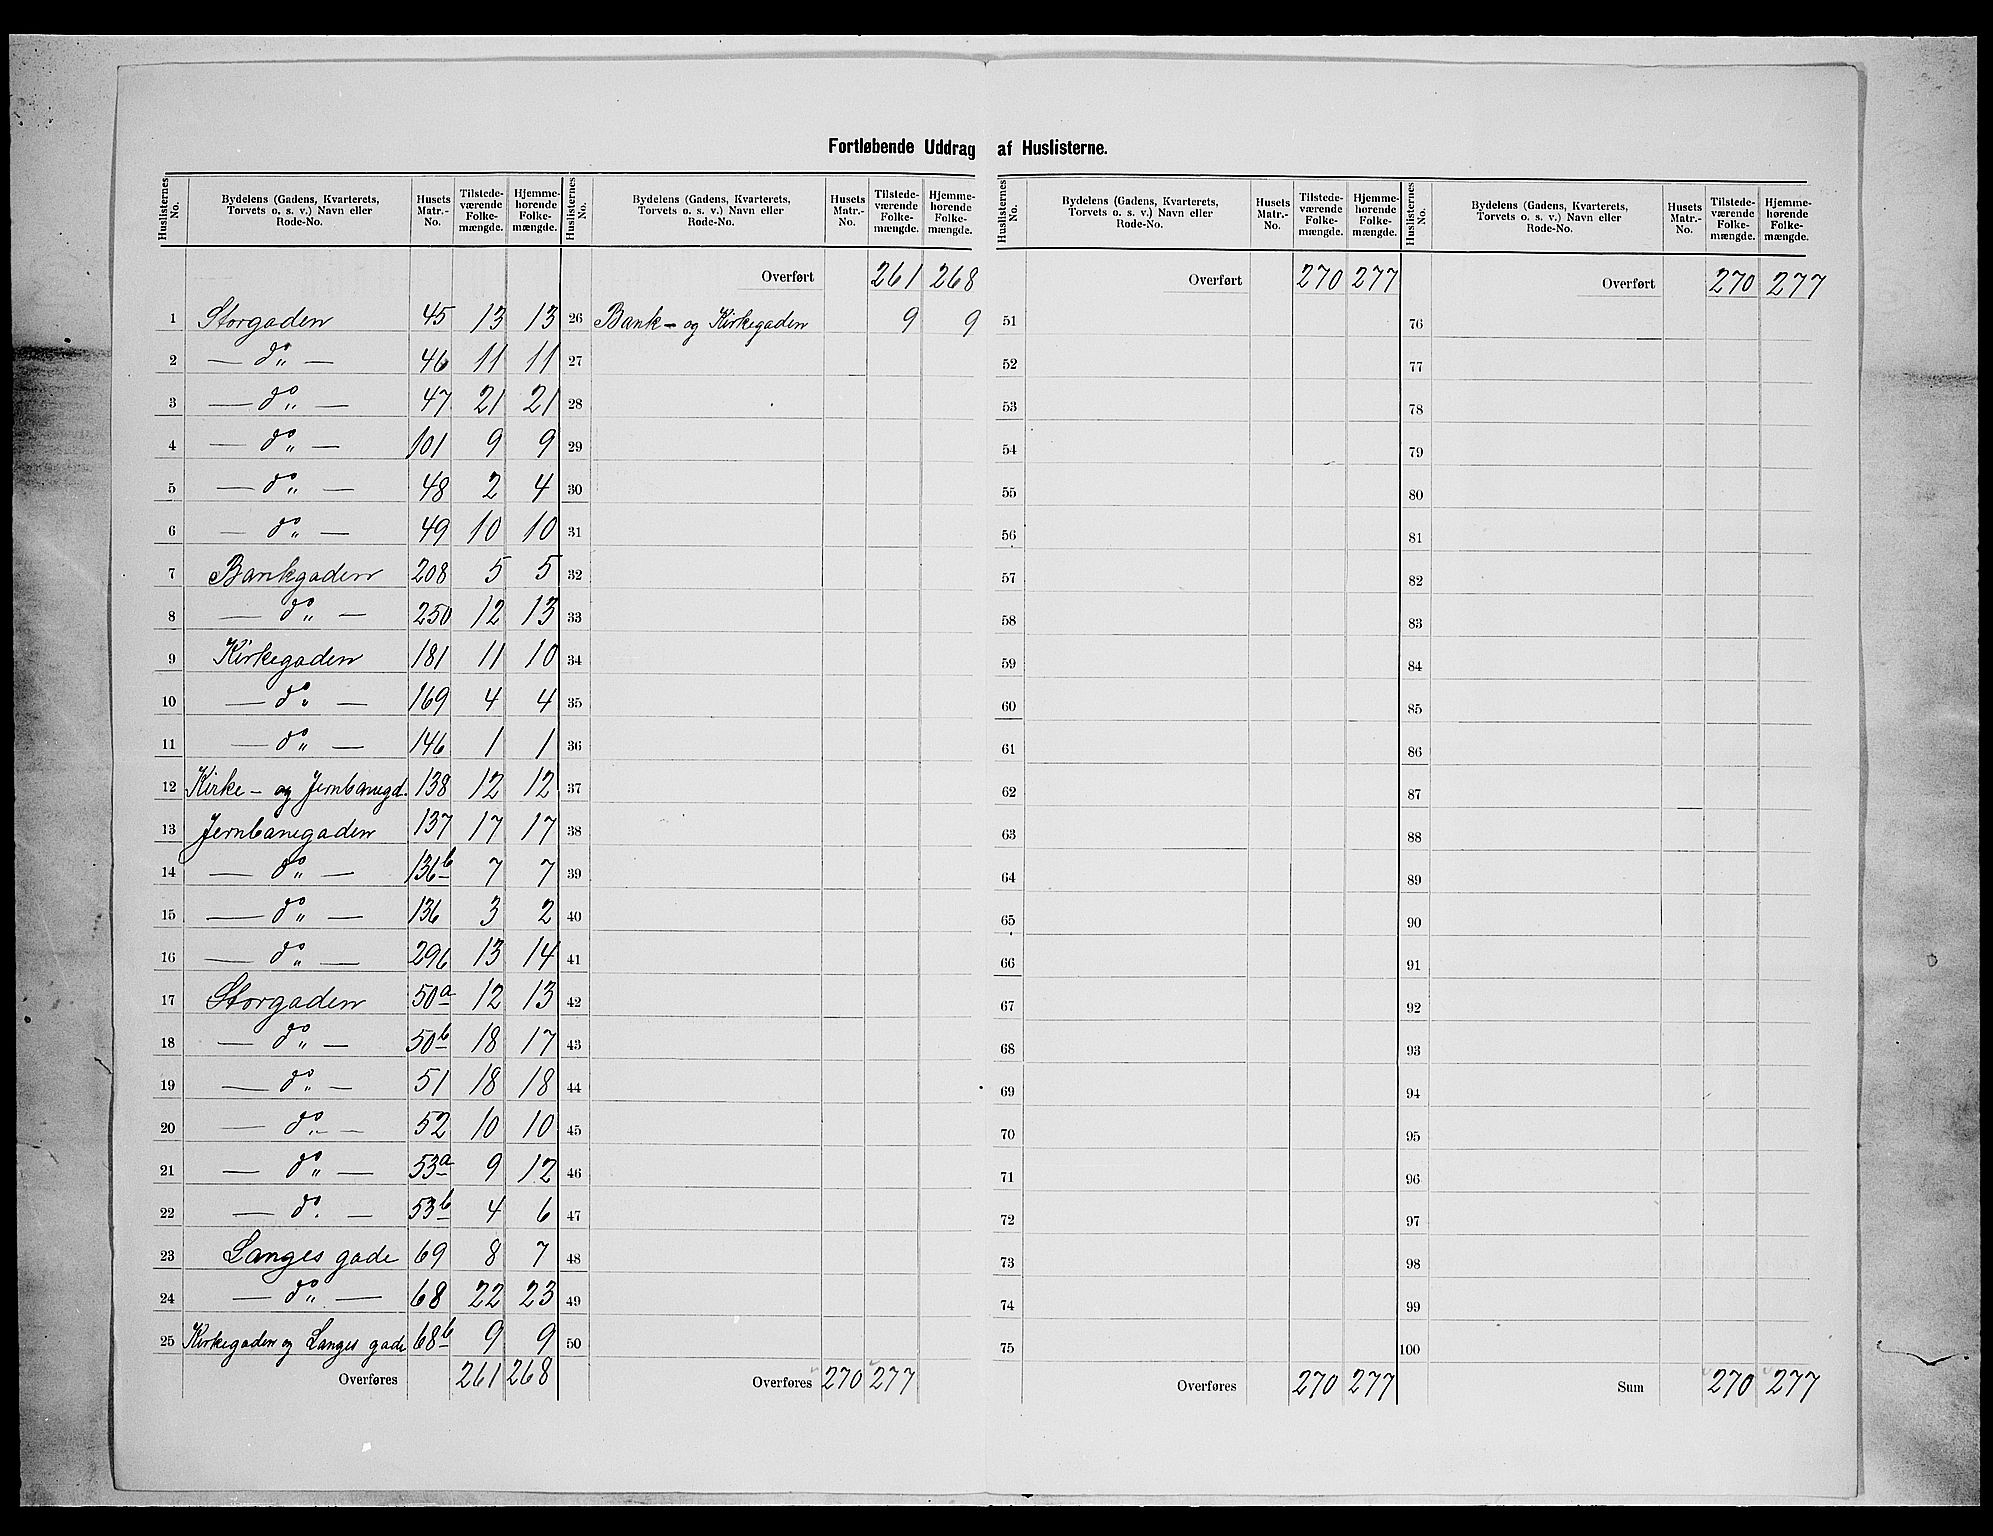 Fortløbende Uddrag af Huslisterne.
Huslisternes No. | Bydelens (Gadens, Kvarterets, Torvets o. s. v.) Navn eller Rode-No. | Husets Matr.-No. | Tilstedeværende Folkemængde. | Hjemmehørende Folkemængde.
1 Storgaden 45 13 13
2 — do „ — 46 11 11
3 — do „ — 47 21 21
4 — do „ — 101 9 9
5 — do „ — 48 2 4
6 — do „ — 49 10 10
7 Bankgaden 208 5 5
8 — do „ — 250 12 13
9 Kirkegaden 181 11 10
10 — do „ — 169 4 4
11 — do „ — 146 1 1
12 Kirke- og Jernbanegd. 138 12 12
13 Jernbanegaden 137 17 17
14 — do „ — 136b 7 7
15 — do „ — 136 3 2
16 — do „ — 296 13 14
17 Storgaden 50a 12 13
18 — do „ — 50b 18 17
19 — do „ — 51 18 18
20 — do „ — 52 10 10
21 — do „ — 53a 9 12
22 — do. — 53b 4 6
23 Langes gade 69 8 7
24 — do „ — 68 22 23
25 Kirkegaden og Langes gade 68b 9 9
Overføres 261 268
Huslisternes No. | Bydelens (Gadens, Kvarterets, Torvets o. s. v.) Navn eller Rode-No. | Husets Matr.-No. | Tilstedeværende Folkemængde. | Hjemmehørende Folkemængde.
Overført 261 268
26 Bank- og Kirkegaden 9 9
27
28
29
30
31
32
33
34
35
36
37
38
39
40
41
42
43
44
45
46
47
48
49
50
Overføres 270 277
Huslisternes No. | Bydelens (Gadens, Kvarterets, Torvets o. s. v.) Navn eller Rode-No. | Husets Matr.-No. | Tilstedeværende Folkemængde. | Hjemmehørende Folkemængde.
Overført 270 277
51
52
53
54
55
56
57
58
59
60
61
62
63
64
65
66
67
68
69
70
71
72
73
74
75
Overføres 270 277
Huslisternes No. | Bydelens (Gadens, Kvarterets, Torvets o. s. v.) Navn eller Rode-No. | Husets Matr.-No. | Tilstedeværende Folkemængde. | Hjemmehørende Folkemængde.
Overført 270 277
76
77
78
79
80
81
82
83
84
85
86
87
88
89
90
91
92
93
94
95
96
97
98
99
100
Sum 270 277